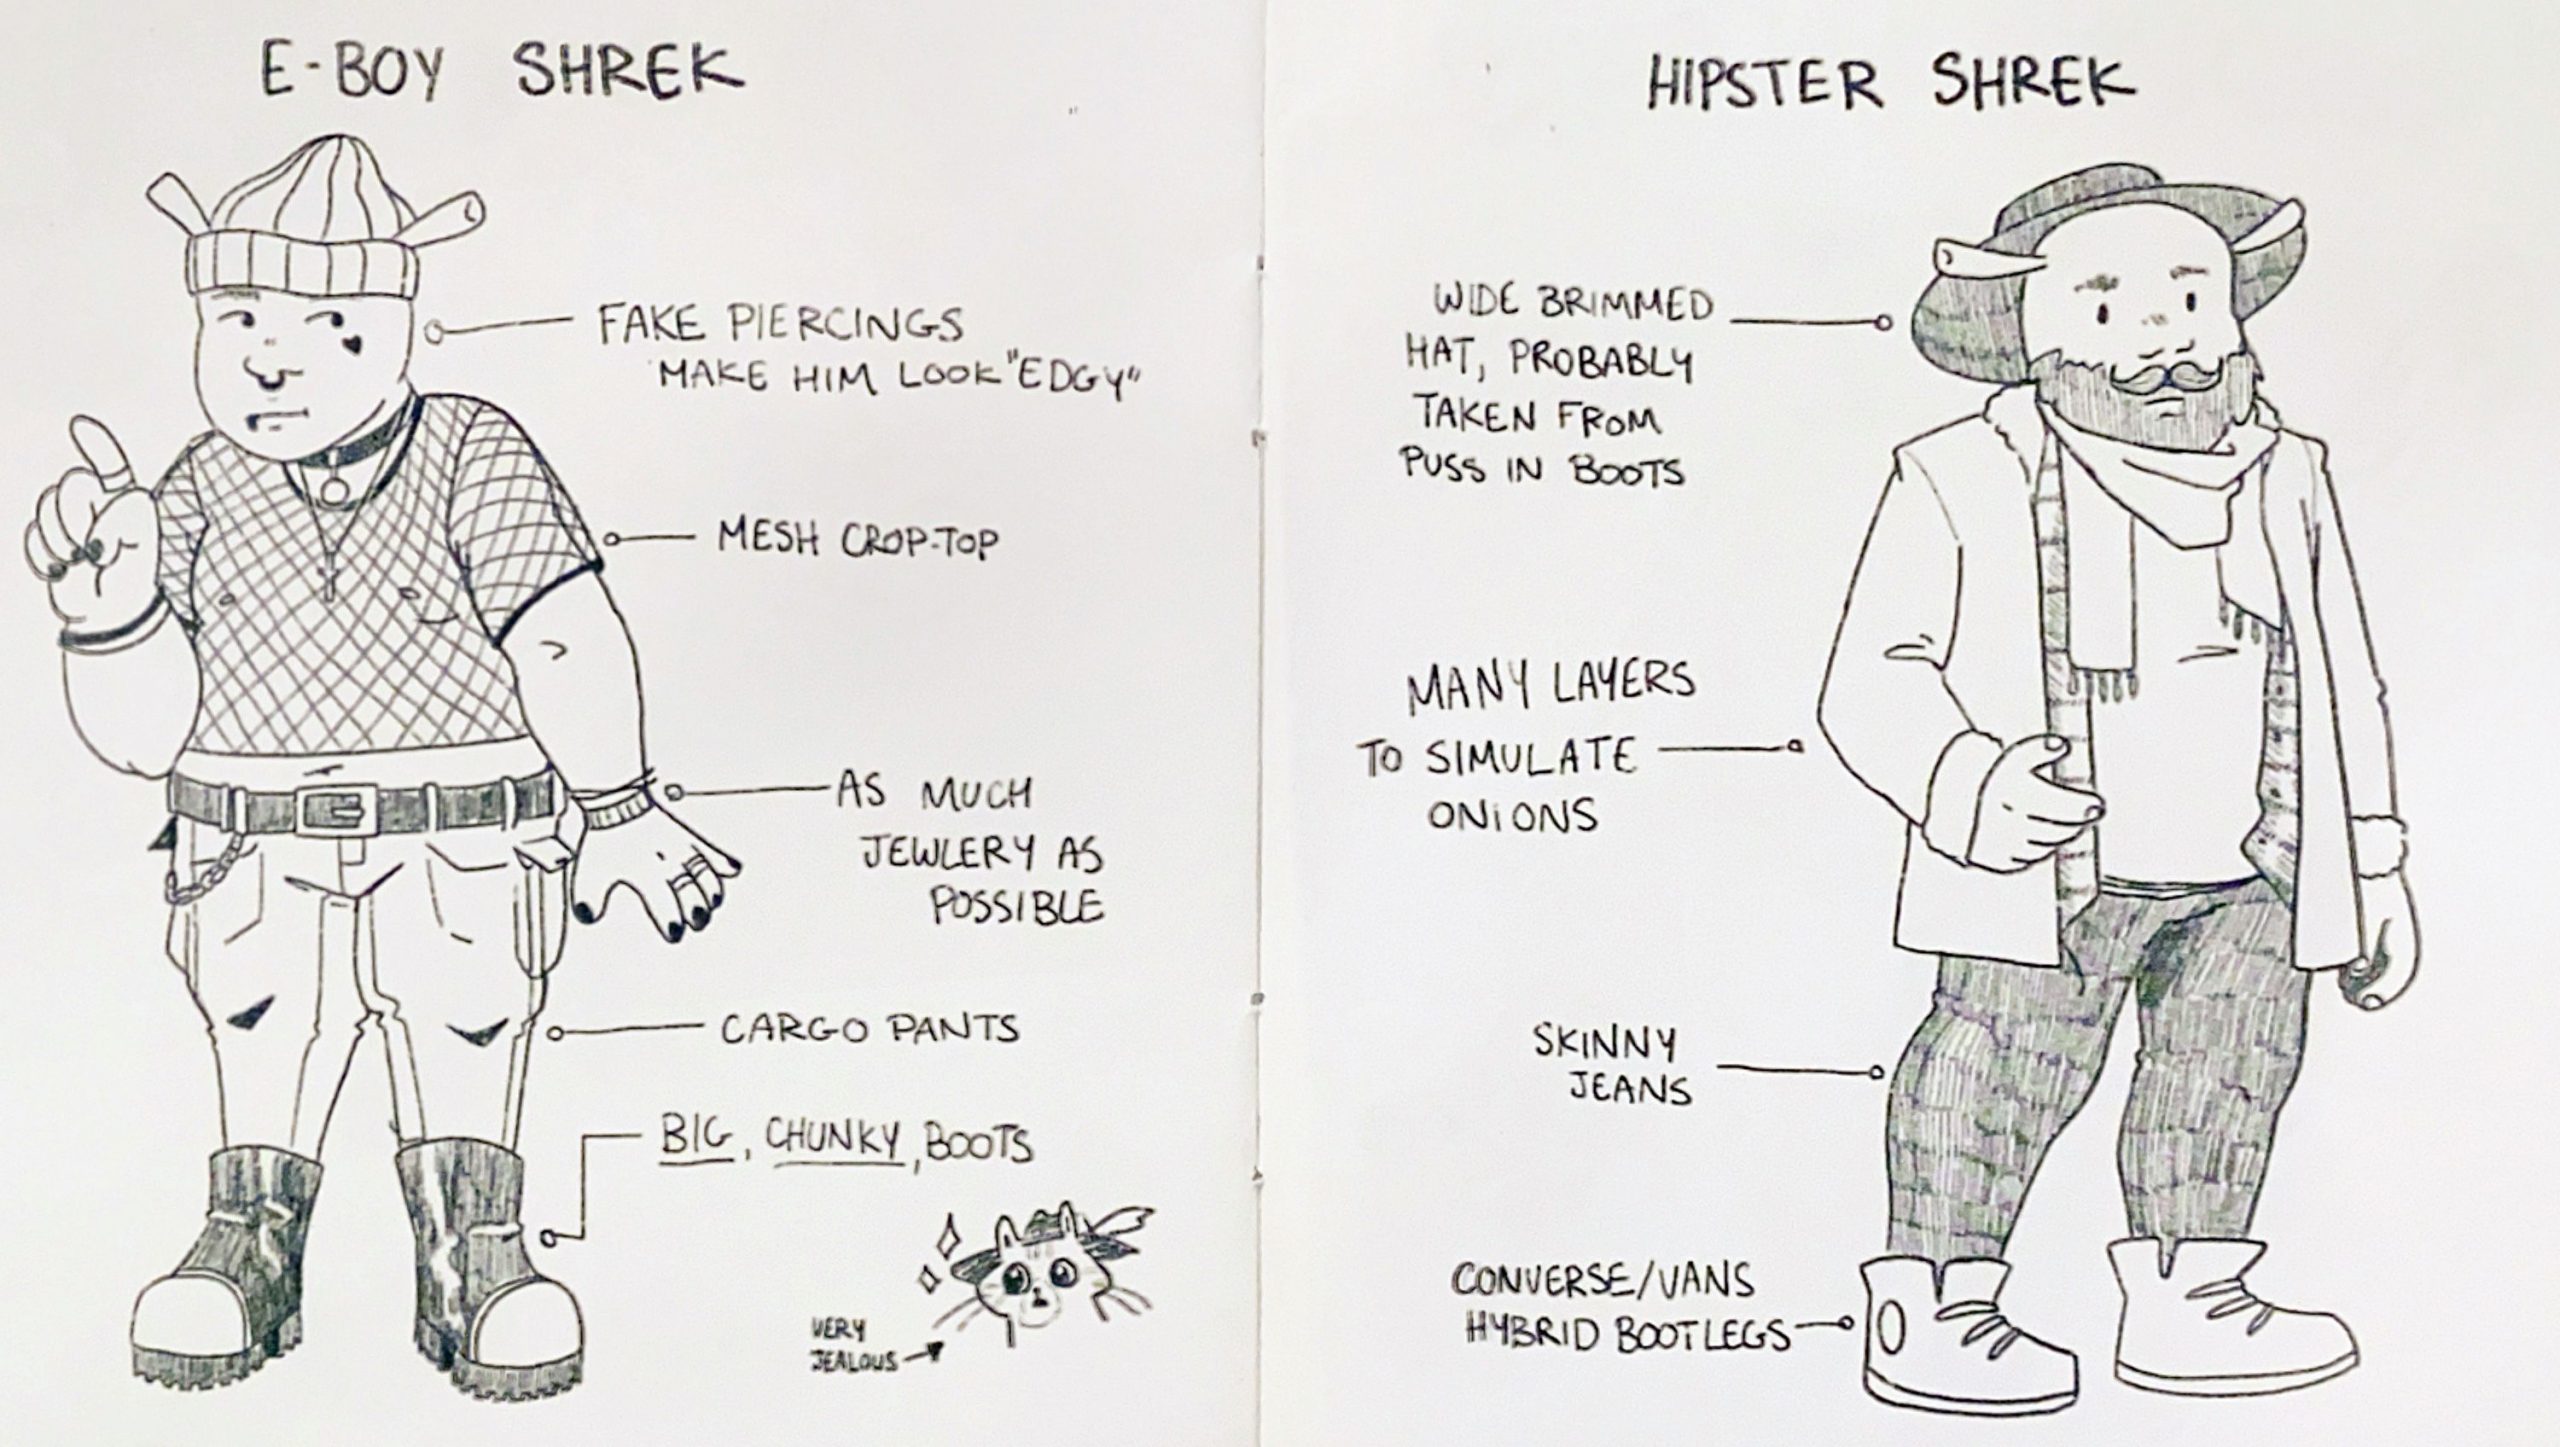 E-BOY SHREK
FAKE PIERCINGS
MAKE HIM LOOK "EDGY"
MESH CROP-TOP
AS MUCH
JEWLERY AS
POSSIBLE
CARGO PANTS
BIG, CHUNKY, BOOTS
VERY
JEALOUS
HIPSTER SHREK
WIDE BRIMMED
HAT, PROBABLY
TAKEN FROM
PUSS IN BOOTS
MANY LAYERS
TO SIMULATE
ONIONS
SKINNY
JEANS
CONVERSE/VANS
HYBRID BOOTLEGS